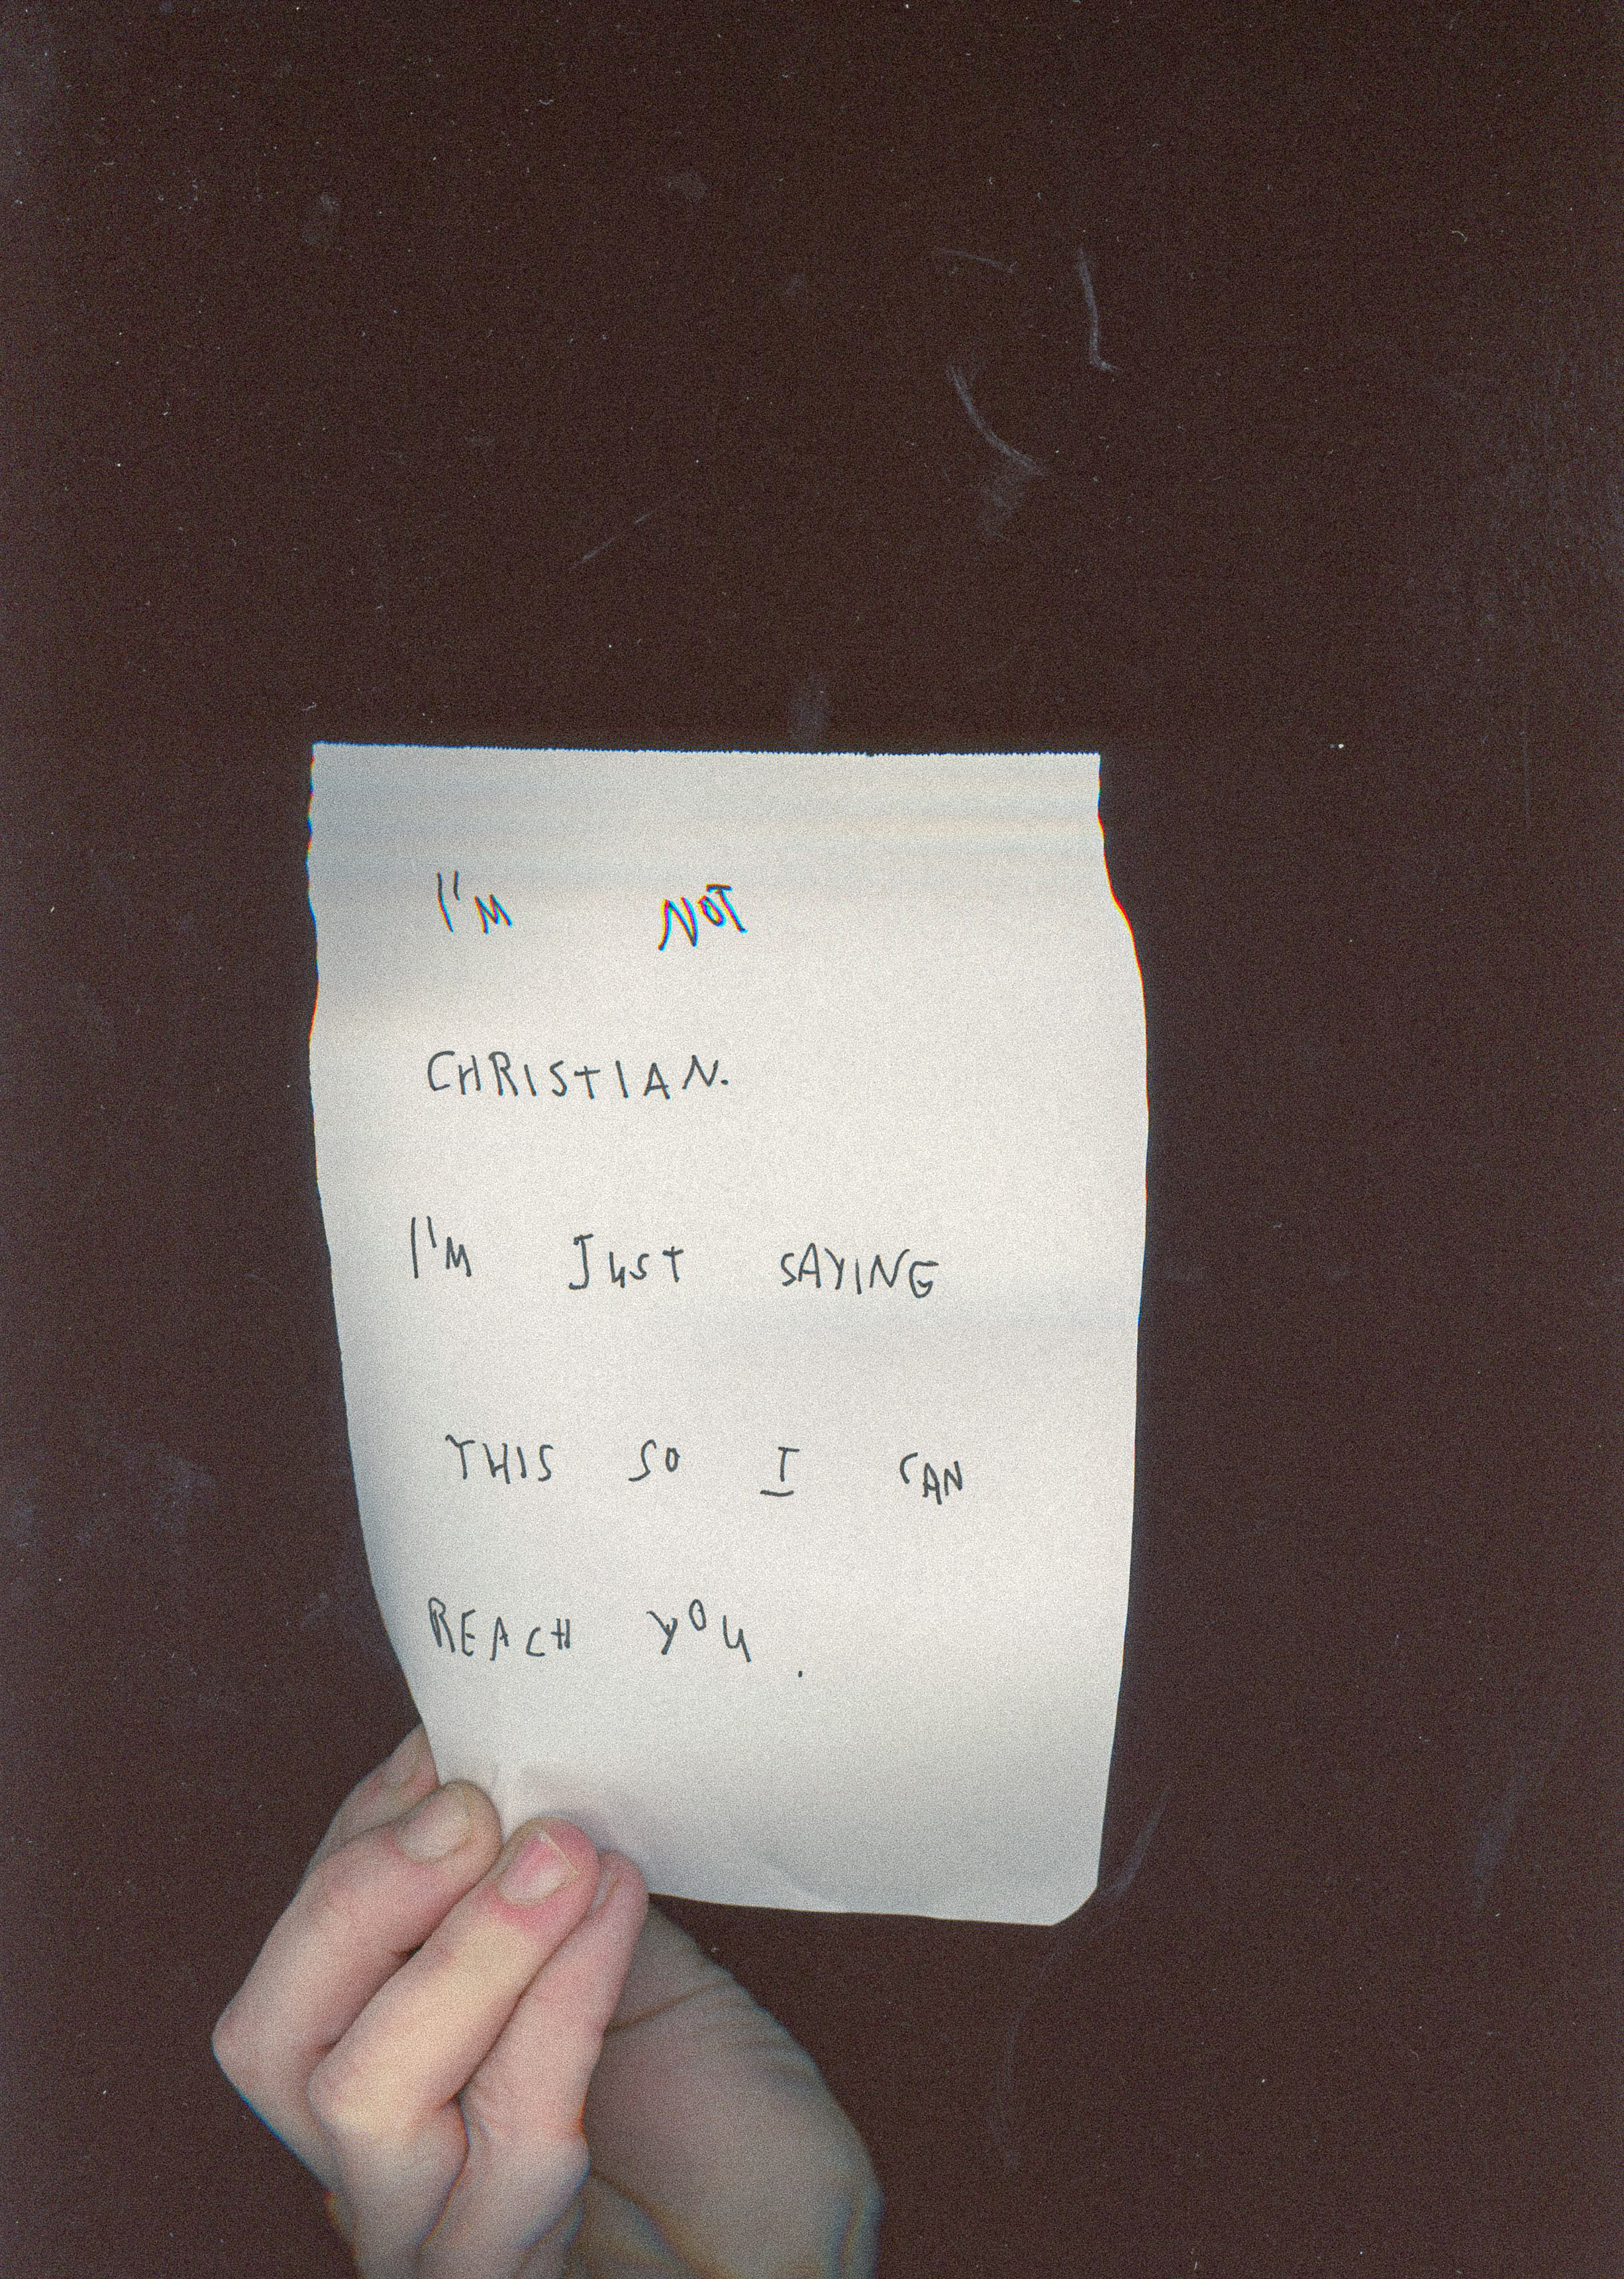 I'M NOT
CHRISTIAN.
I'M JUST SAYING
THIS SO I CAN
REACH YOU.